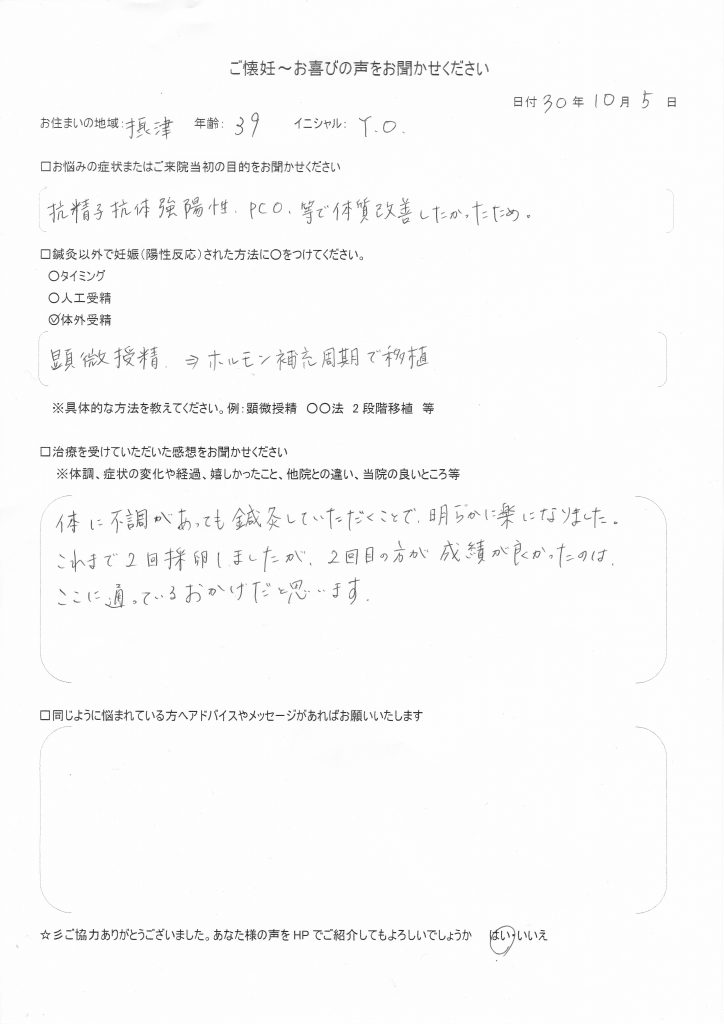 ご懐妊～お喜びの声をお聞かせください
日付 30 年 10 月 5 日
お住まいの地域：摂津 年齢： 39 イニシャル： Y.O.
□お悩みの症状またはご来院当初の目的をお聞かせください
抗精子抗体強陽性、PCO、等で体質改善したかったため。
□鍼灸以外で妊娠（陽性反応）された方法に○をつけてください。
○タイミング
○人工受精
○体外受精
顕微授精 ⇒ ホルモン補充周期で移植
※具体的な方法を教えてください。例：顕微授精 ○○法 2段階移植 等
□治療を受けていただいた感想をお聞かせください
※体調、症状の変化や経過、嬉しかったこと、他院との違い、当院の良いところ等
体に不調があっても鍼灸していただくことで、明らかに楽になりました。
これまで2回採卵しましたが、2回目の方が成績が良かったのは、
ここに通っているおかげだと思います。
□同じように悩まれている方へアドバイスやメッセージがあればお願いいたします
☆彡ご協力ありがとうございました。あなた様の声をHPでご紹介してもよろしいでしょうか はい・いいえ